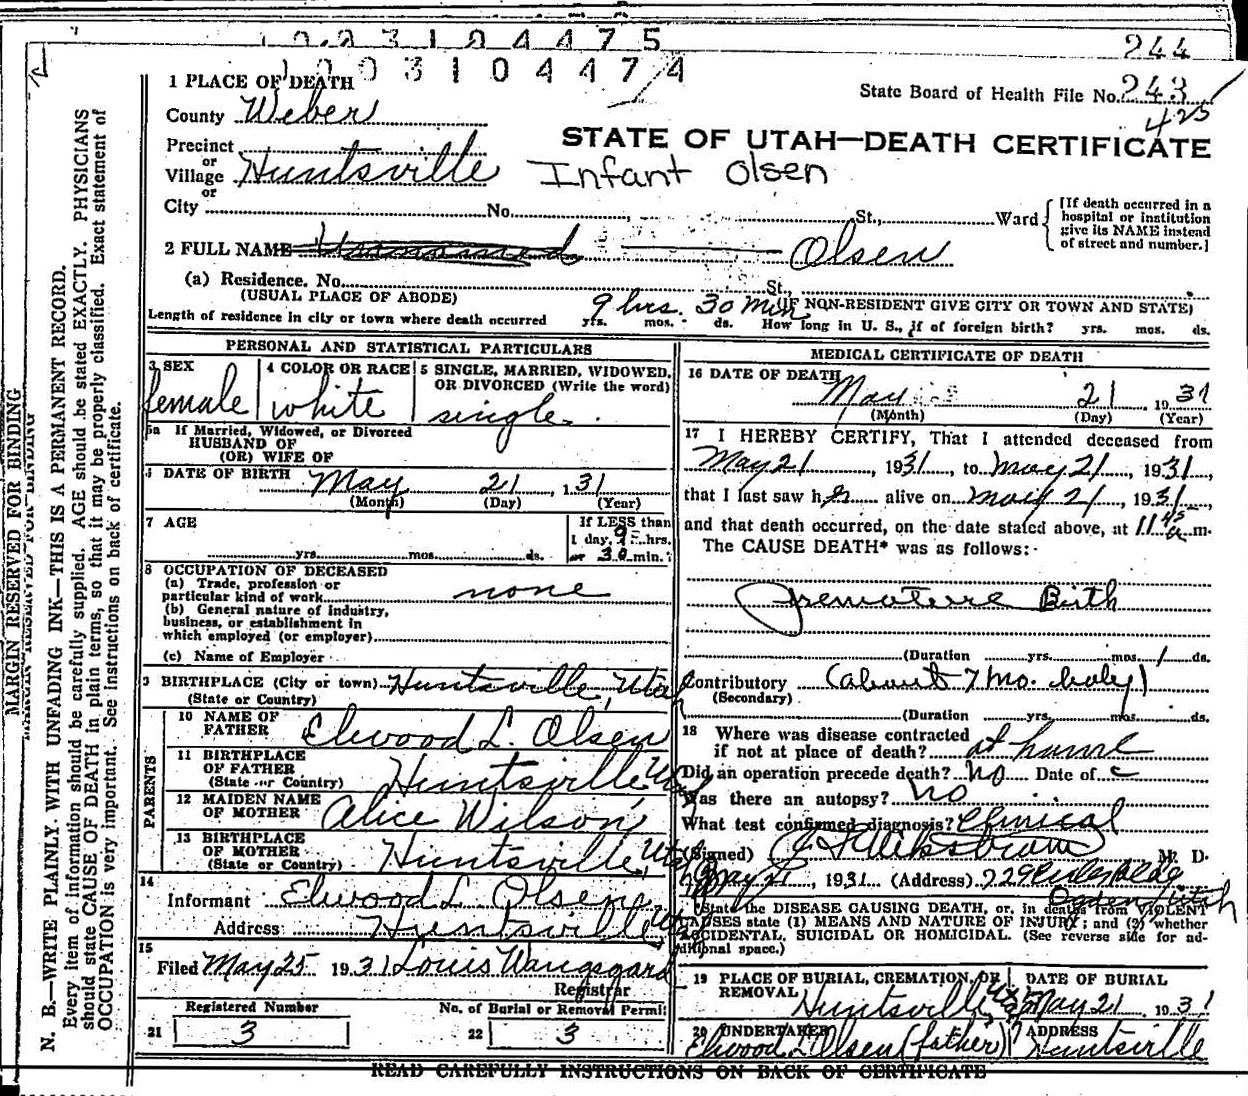 1003104475
1003104474
244
State Board of Health File No. 243
425
1 PLACE OF DEATH
County Weber
STATE OF UTAH—DEATH CERTIFICATE
Precinct
or
Village Huntsville
Infant Olsen
or
City No. St., Ward
[If death occurred in a hospital or institution give its NAME instead of street and number.]
2 FULL NAME Unnamed Olsen
(a) Residence. No. St.
(USUAL PLACE OF ABODE) (IF NON-RESIDENT GIVE CITY OR TOWN AND STATE)
9 hrs. 30 Min
Length of residence in city or town where death occurred yrs. mos. ds. How long in U. S., if of foreign birth? yrs. mos. ds.
PERSONAL AND STATISTICAL PARTICULARS
3 SEX
female
4 COLOR OR RACE
white
5 SINGLE, MARRIED, WIDOWED, OR DIVORCED (Write the word)
single
5a If Married, Widowed, or Divorced
HUSBAND OF
(OR) WIFE OF
DATE OF BIRTH May 21, 1931
(Month) (Day) (Year)
7 AGE
yrs. mos. ds.
If LESS than
1 day, 9 hrs.
or 30 min.
8 OCCUPATION OF DECEASED
(a) Trade, profession or
particular kind of work none
(b) General nature of industry,
business, or establishment in
which employed (or employer)
(c) Name of Employer
9 BIRTHPLACE (City or town) Huntsville, Utah
(State or Country)
PARENTS
10 NAME OF
FATHER Elwood L. Olsen
11 BIRTHPLACE
OF FATHER Huntsville Ut
(State or Country)
12 MAIDEN NAME
OF MOTHER Alice Wilson
13 BIRTHPLACE
OF MOTHER Huntsville, Utah
(State or Country)
14
Informant Elwood L. Olsen
Address Huntsville Ut
15
Filed May 25 1931 Louis Wangsgard
Registrar
Registered Number
21 3
No. of Burial or Removal Permit
22 3
MEDICAL CERTIFICATE OF DEATH
16 DATE OF DEATH
May 21, 1931
(Month) (Day) (Year)
17 I HEREBY CERTIFY, That I attended deceased from
May 21, 1931, to May 21, 1931,
that I last saw her alive on May 21, 1931,
and that death occurred, on the date stated above, at 11 45 a m.
The CAUSE DEATH* was as follows:
Premature Birth
(Duration yrs. mos. 1 ds.
Contributory (about 7 mo. baby)
(Secondary)
(Duration yrs. mos. ds.
18 Where was disease contracted
if not at place of death? at home
Did an operation precede death? No Date of
Was there an autopsy? No
What test confirmed diagnosis? Clinical
(Signed) M. D.
May 21, 1931 (Address)
Ogden Utah
*State the DISEASE CAUSING DEATH, or, in deaths from VIOLENT
CAUSES state (1) MEANS AND NATURE OF INJURY; and (2) whether
ACCIDENTAL, SUICIDAL OR HOMICIDAL. (See reverse side for ad-
ditional space.)
19 PLACE OF BURIAL, CREMATION, OR
REMOVAL Huntsville
DATE OF BURIAL
May 21 1931
20 UNDERTAKER
Elwood L. Olsen (father)
ADDRESS
Huntsville
READ CAREFULLY INSTRUCTIONS ON BACK OF CERTIFICATE
MARGIN RESERVED FOR BINDING
N. B.—WRITE PLAINLY, WITH UNFADING INK—THIS IS A PERMANENT RECORD.
Every item of information should be carefully supplied. AGE should be stated EXACTLY. PHYSICIANS
should state CAUSE OF DEATH in plain terms, so that it may be properly classified. Exact statement of
OCCUPATION is very important. See instructions on back of certificate.